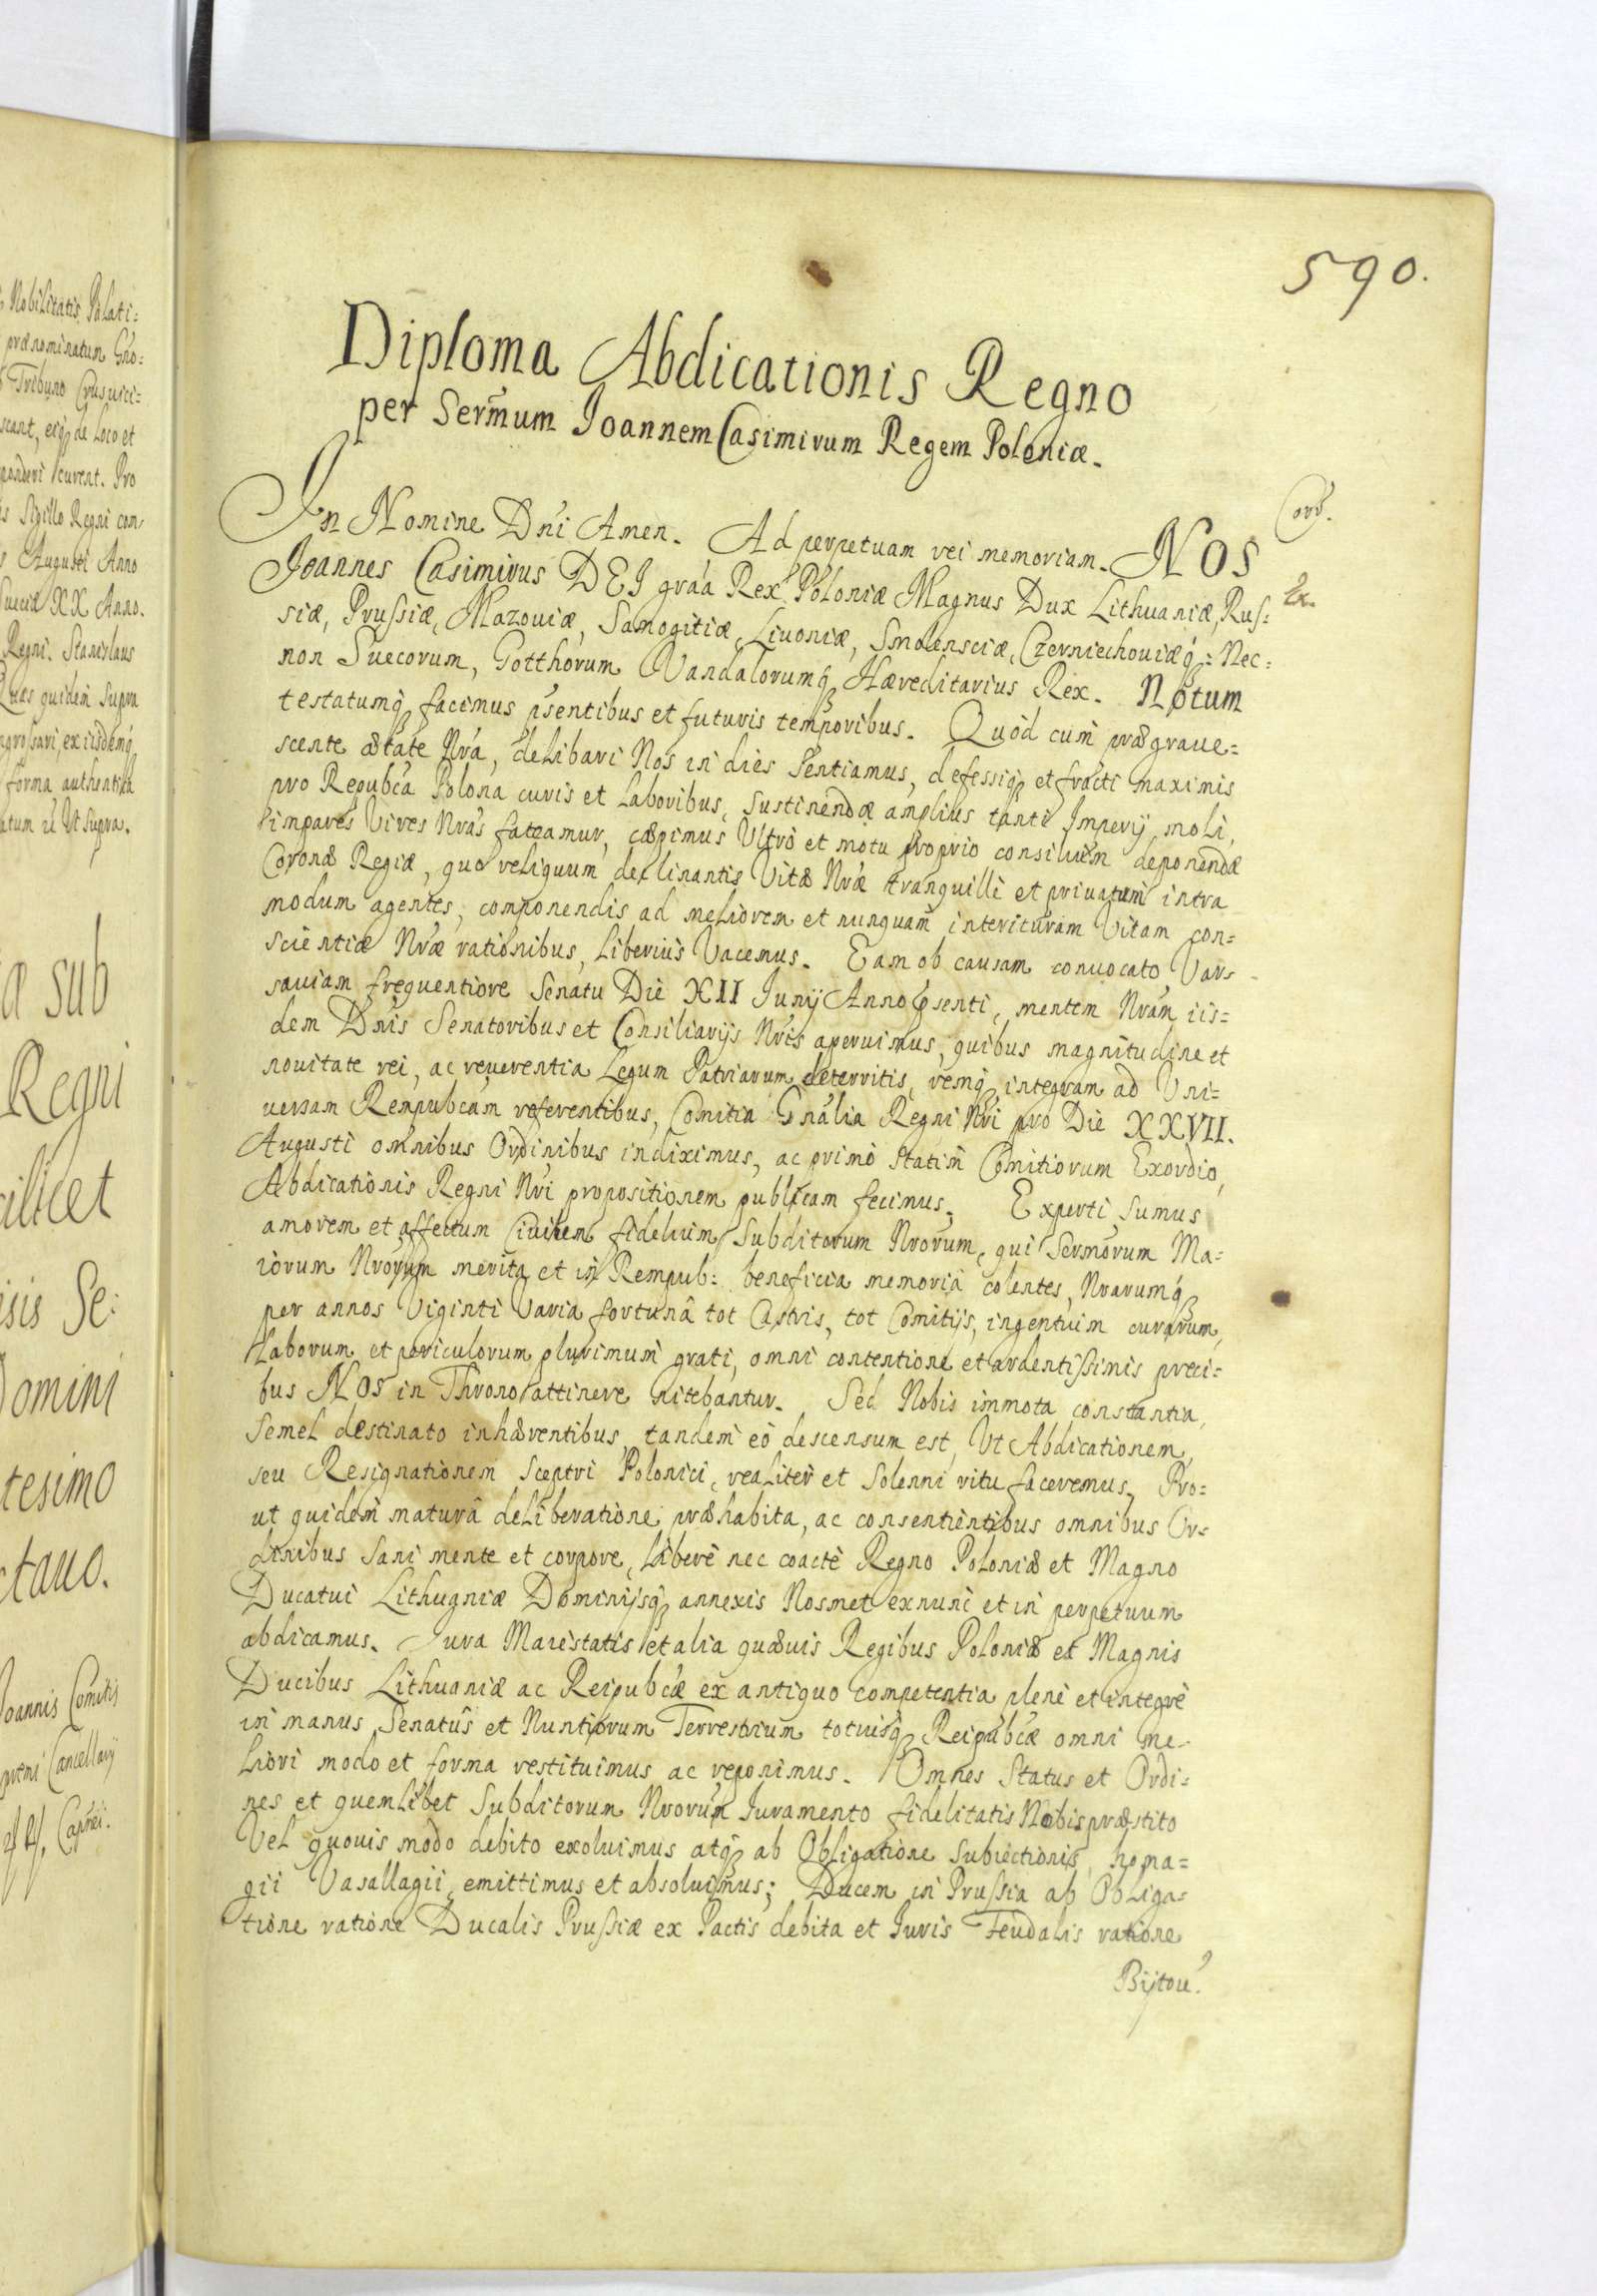 Nobilitatis Palati:
prænominatum Gño:
Tribuno Crusuici:
de Loco et
curent. Pro
Sigillo Regni con
Augusti Anno
Sueciæ XX Anno.
Regni. Stanislaus
quidem supra
ex iisdemq́
forma authentica
Vt supra.
sub
Regni
Se:
Domini
tesimo
ctauo.
Joannis Comitis
Cancellarij
Capnei.
590.
Diploma Abdicationis Regno
per Serm̃um Joannem Casimirum Regem Poloniæ.
In Nomine Dńi Amen. Ad perpetuam rei memoriam. NOS
Corr.
Joannes Casimirus DEI gráa Rex Poloniæ Magnus Dux Lithuaniæ, Rus:
Ex.
siæ, Prussiæ, Mazouiæ, Samogitiæ, Liuoniæ, Smolensciæ, Czerniechouiæq́: Nec:
non Suecorum, Gotthorum Vandalorumq́ Hæreditarius Rex. Notum
testatumq́ facimus p̃sentibus et futuris temporibus. Quòd cum prægraue:
scente ætate Nrá, delibari Nos in dies sentiamus, defessiq́ et fracti maximis
pro Repubcá Polona curis et laboribus, sustinendæ amplius tanti Imperij moli,
impares Vires Nrás fateamur, cæpimus Vltrò et motu proprio consilium deponendæ
Coronæ Regiæ, quo reliquum declinantis Vitæ Nræ tranquillè et priuatum intra
modum agentes, componendis ad meliorem et nunquam interituram Vitam con:
scientiæ Nræ rationibus, liberius Vacemus. Eam ob causam conuocato Var:
sauiam frequentiore Senatu Die XII Junij Anno p̃senti, mentem Nrám iis:
dem Dńis Senatoribus et Consiliarijs Nrís aperuimus, quibus magnitudine et
nouitate rei, ac reuerentia Legum Patriarum deterritis, remq́ integram ad Vni:
uersam Rempubcám referentibus, Comitia Gnália Regni Nrí pro Die XXVII.
Augusti omnibus Ordinibus indiximus, ac primò statim Comitiorum Exordio,
Abdicationis Regni Nrí propositionem publicam fecimus. Experti sumus
amorem et affectum Ciuilem fidelium Subditorum Nrorum, qui Sermorum Ma:
iorum Nrorum merita et in Rempub: beneficia memoriâ colentes, Nrarumq́
per annos Viginti Varia fortunâ tot Castris, tot Comitijs, ingentium curarum,
laborum et periculorum plurimum grati, omni contentione et ardentissimis preci:
bus NOS in Throno attinere nitebantur. Sed Nobis immota constantia,
semel destinato inhærentibus, tandem eò descensum est, Vt Abdicationem,
seu Resignationem Sceptri Polonici, realiter et solenni ritu faceremus, Pro:
ut quidem maturâ deliberatione præhabita, ac consentientibus omnibus Or:
dinibus sani mente et corpore, liberè nec coactè Regno Poloniæ et Magno
Ducatui Lithuaniæ Dominijsq́ annexis Nosmet exnunc et in perpetuum
abdicamus. Jura Maiestatis et alia quæuis Regibus Poloniæ et Magnis
Ducibus Lithuaniæ ac Reipubcæ ex antiquo competentia plenè et integrè
in manus Senatûs et Nuntiorum Terrestrium totiusq́ Reipubcæ omni me:
liori modo et forma restituimus ac reponimus. Omnes Status et Ordi:
nes et quemlibet Subditorum Nrorum Iuramento fidelitatis Nobis præstito
Vel quouis modo debito exoluimus atq́ ab Obligatione subiectionis, homa:
gii Vasallagii, emittimus et absoluimus; Ducem in Prussia ab Obliga:
tione ratione Ducalis Prussiæ ex Pactis debita et Iuris Feudalis ratione